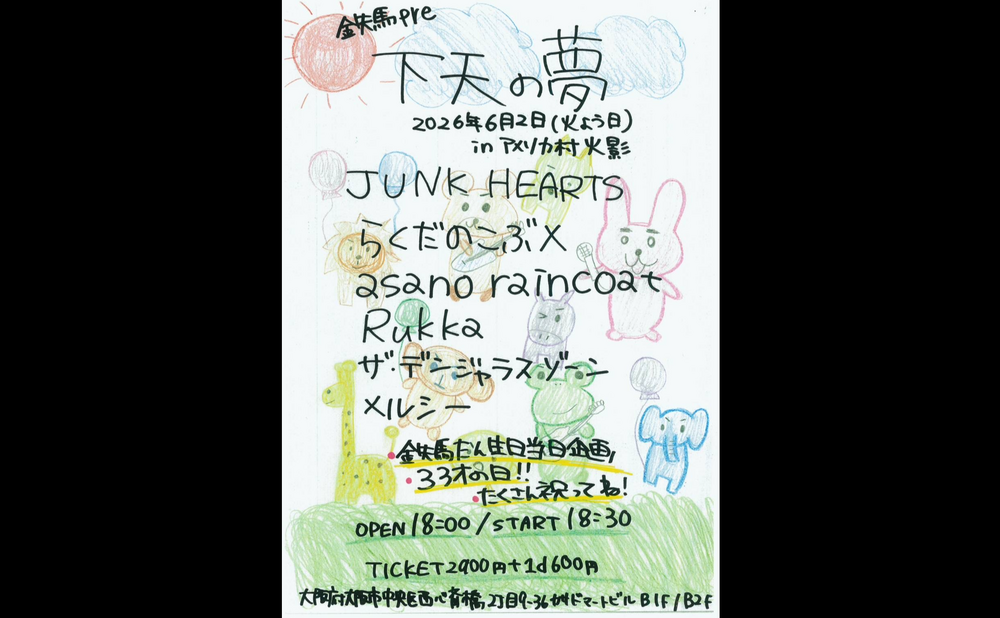 鉄馬pre
下天の夢
2026年6月2日(火よう日)
in アメリカ村 火影
JUNK HEARTS
らくだのこぶX
asano raincoat
Rukka
ザ・デンジャラスゾーン
メルシー
・鉄馬だん生日当日企画!
・33才の日!!
・たくさん祝ってね!
OPEN 18:00 / START 18:30
TICKET 2900円+1d600円
大阪府大阪市中央区西心斎橋2丁目9-36 ビル B1F/B2F